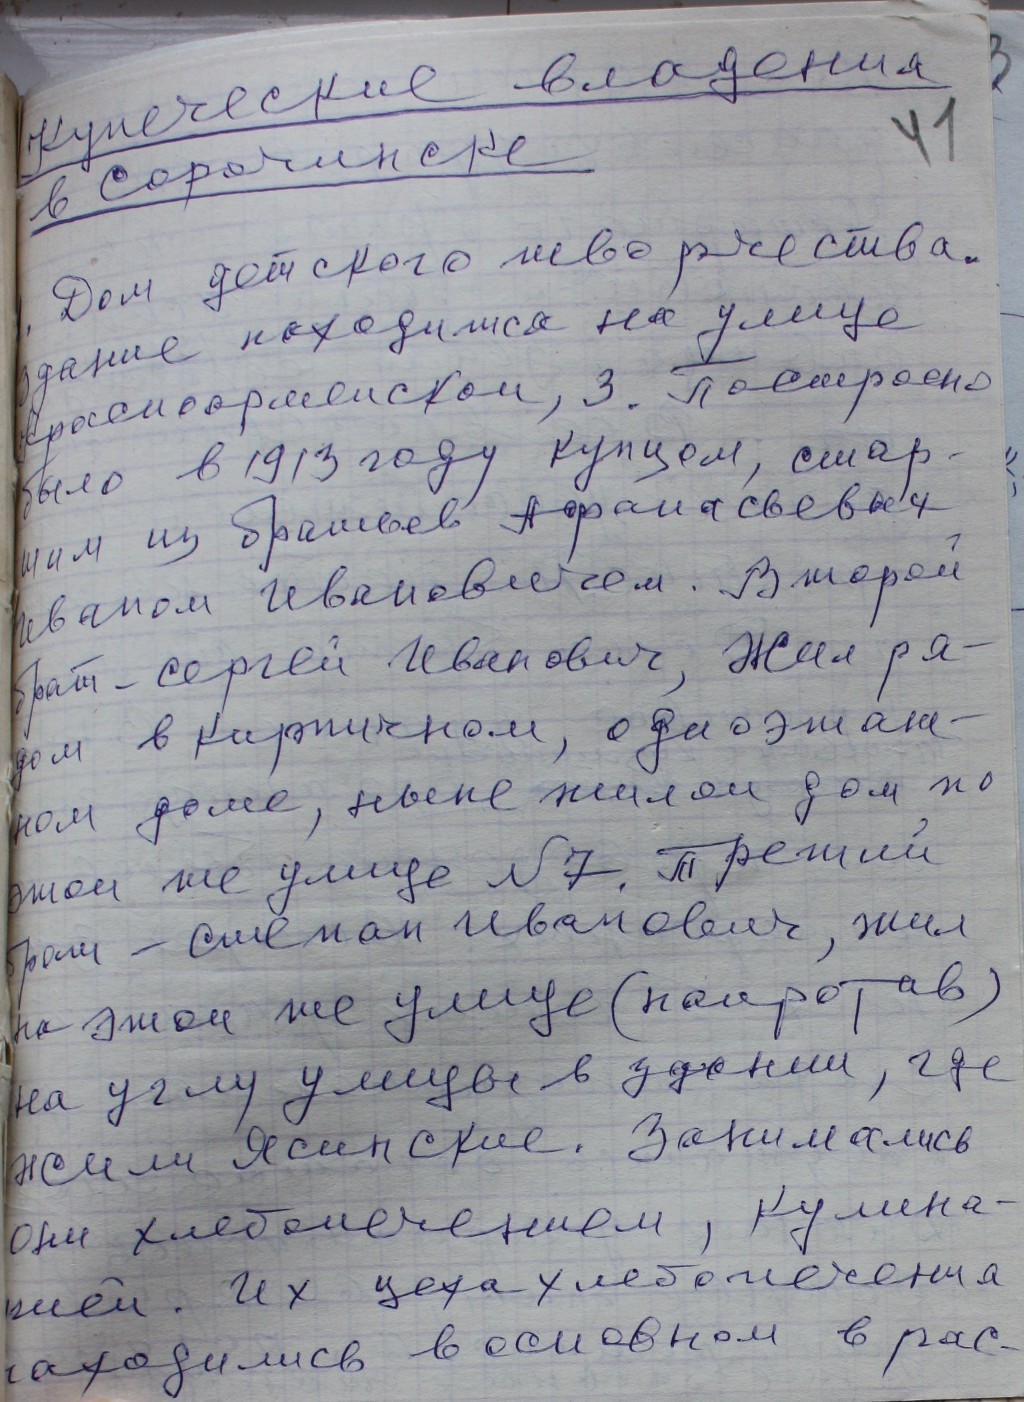 Купеческие владения
41
в Сорочинске
1. Дом детского творчества.
Здание находится на улице
Красноармейской, 3. Построено
было в 1913 году купцом, стар-
шим из братьев Афанасьевых
Иваном Ивановичем. Второй
брат - Сергей Иванович, жил ря-
дом в кирпичном, одноэтаж-
ном доме, ныне жилой дом по
этой же улице № 7. Третий
брат - Степан Иванович, жил
на этой же улице (напротав)
на углу улицы в здании, где
жили Ясинские. Занимались
они хлебопечением, кулина-
рией. Их цеха хлебопечения
находились в основном в рас-